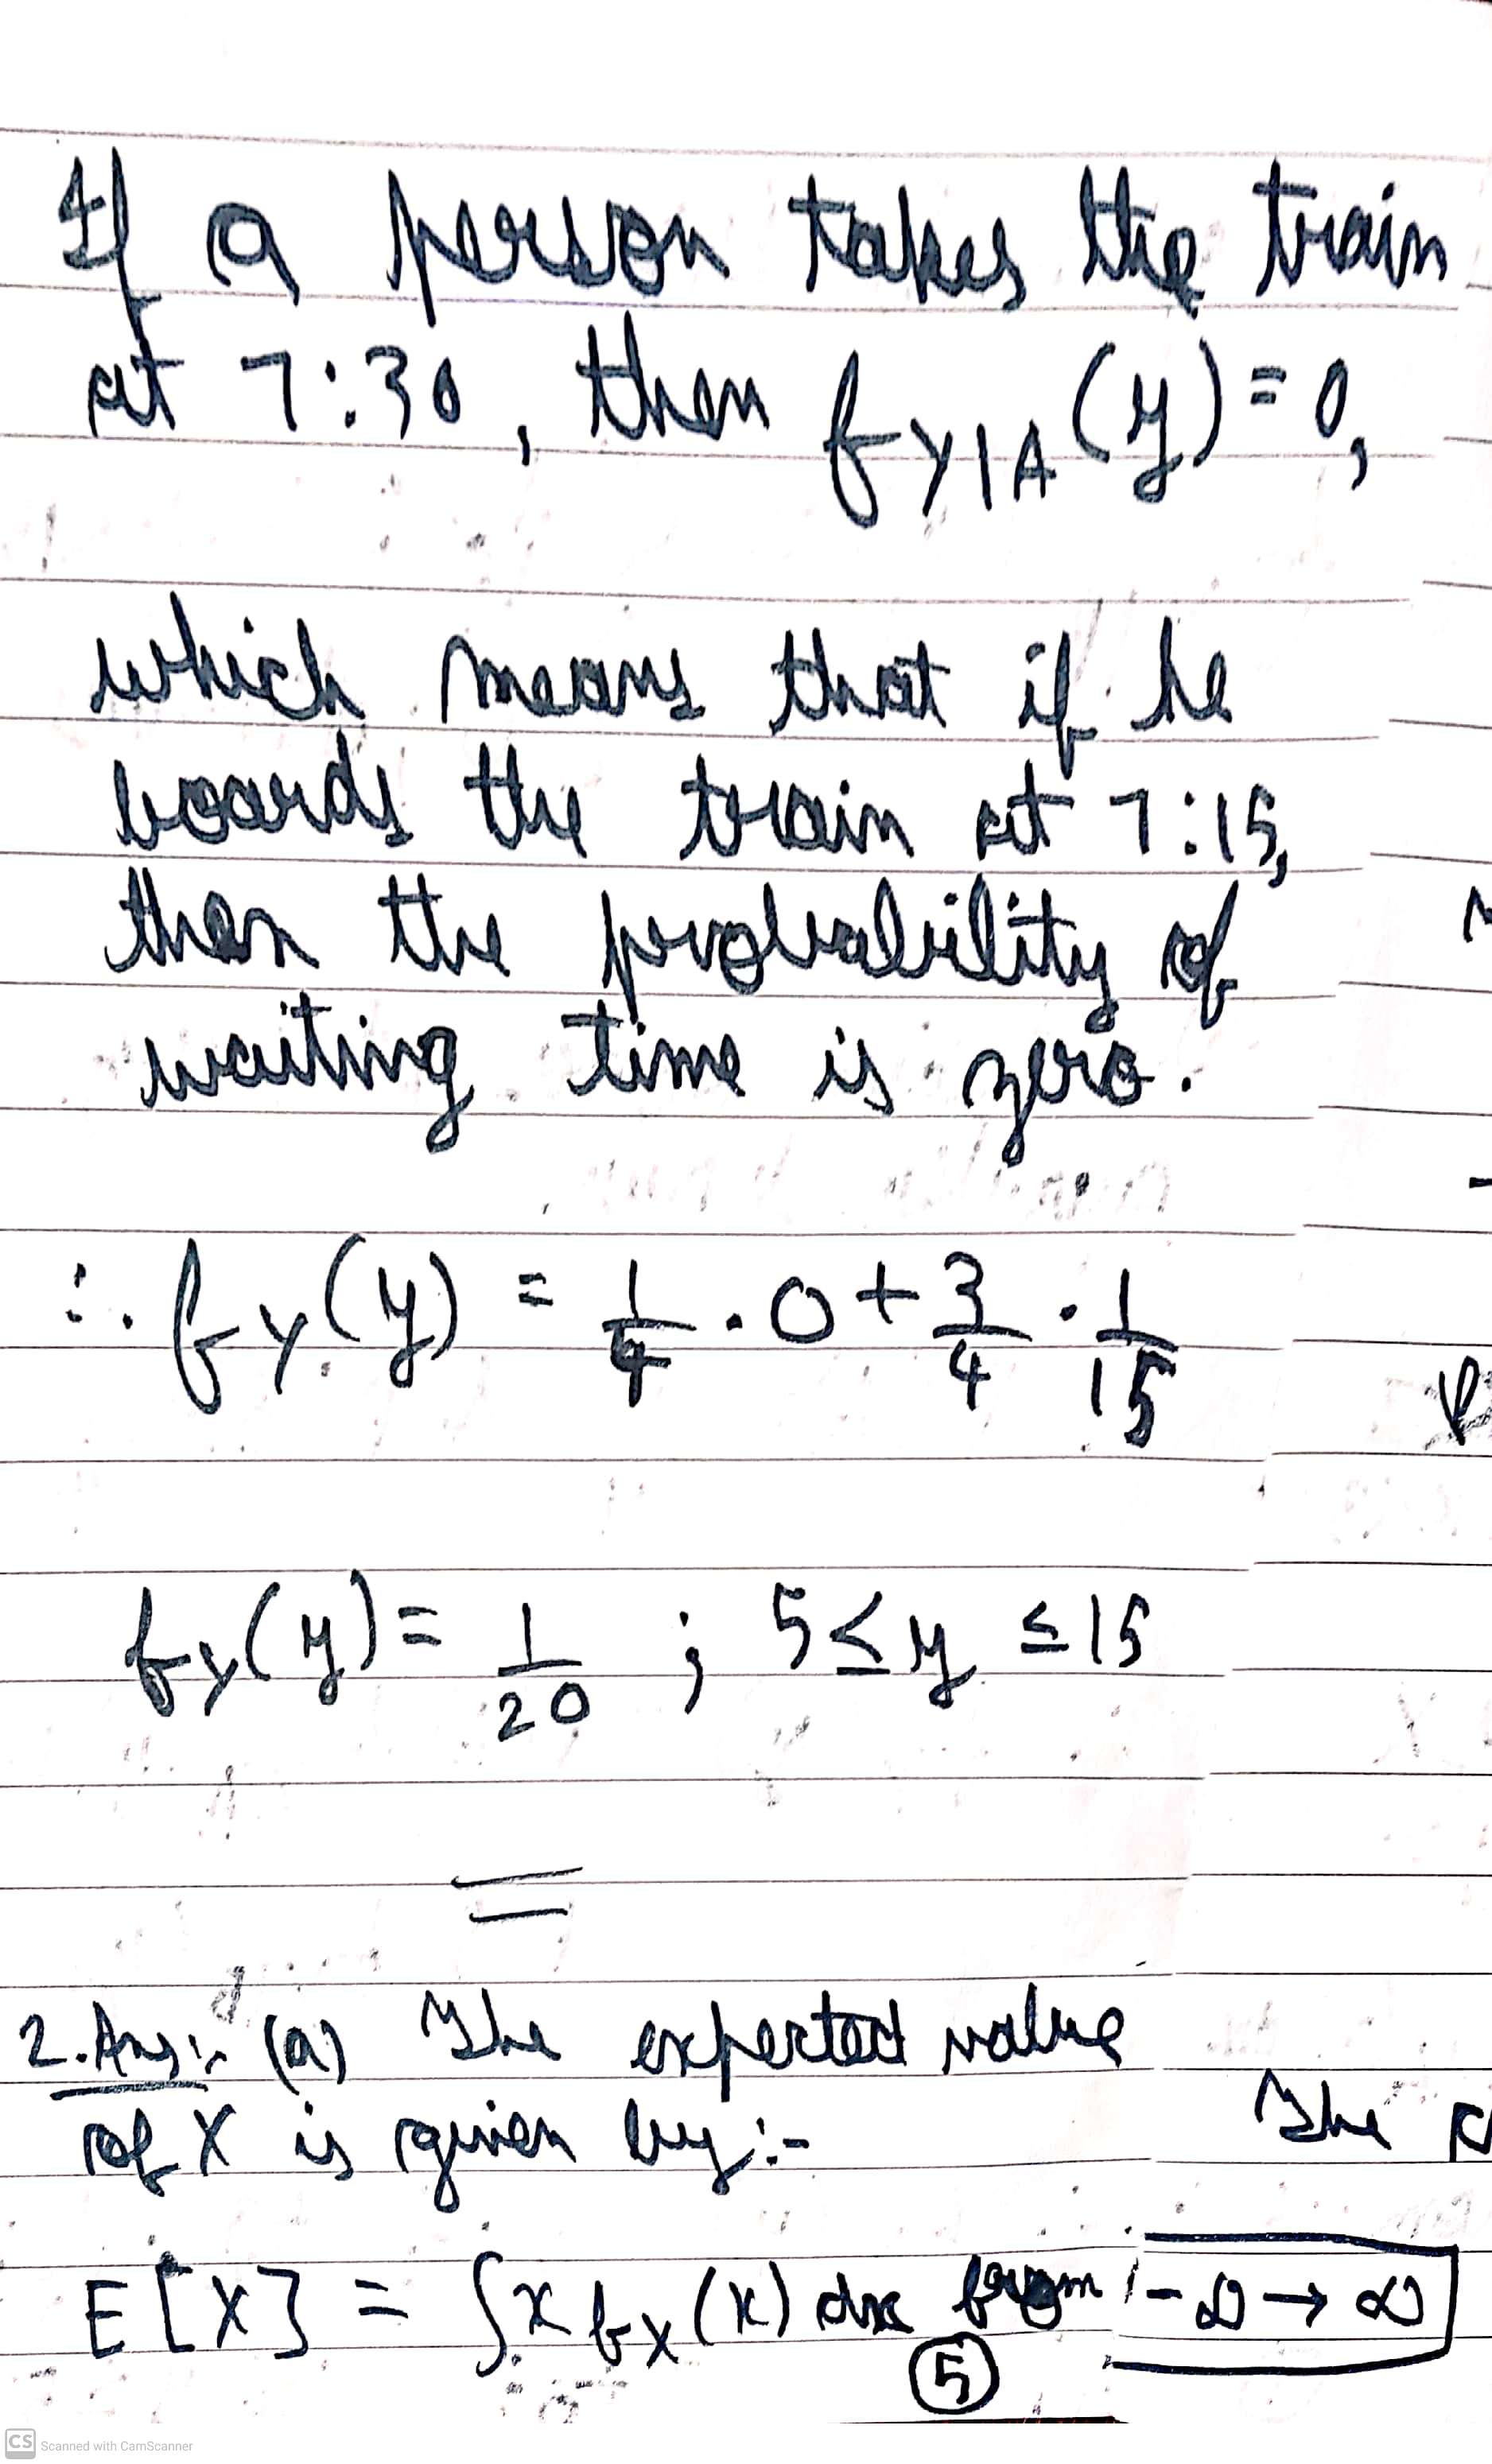 If a person takes the train
at 7:30, then fY|A(y)=0,
which means that if he
boards the train at 7:15,
then the probability of
waiting time is zero.
∴ fY(y) = 1/4 · 0 + 3/4 · 1/15
fY(y) = 1/20 ; 5 ≤ y ≤ 15
2. Ans:- (a) The expected value
of X is given by:-
The
E[X] = ∫x fX(x) dx from -∞ → ∞
5
CS Scanned with CamScanner